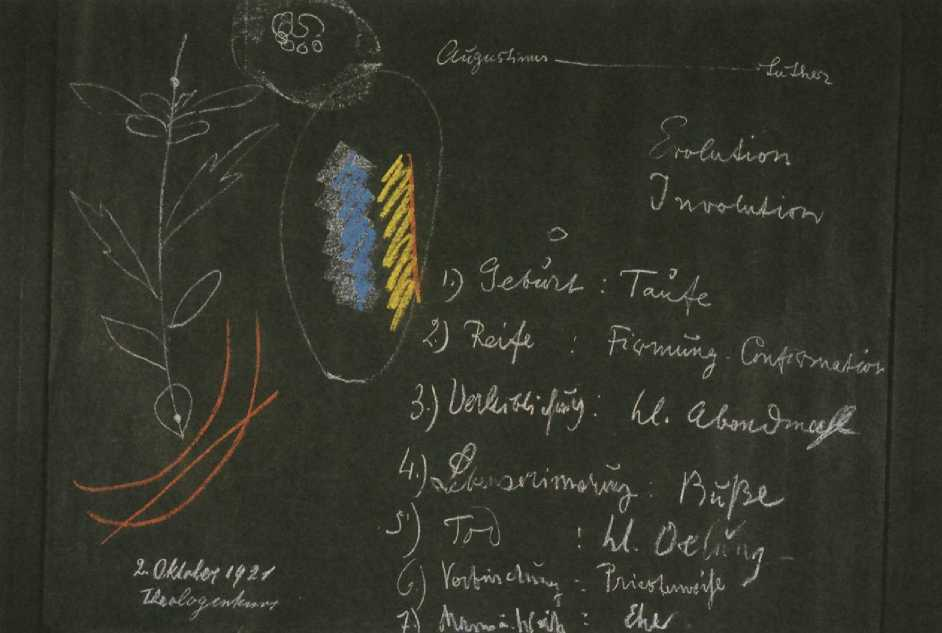 Augustinus ——— Luther
Evolution
Involution
1.) Geburt : Taufe
2.) Reife : Firmung. Confirmation
3.) Verleiblichung : hl. Abendmahl
4.) Lebenserinnerung : Buße
5.) Tod : hl. Oelung
6.) Verbindung : Priesterweihe
7.) Mann u. Weib : Ehe
2. Oktober 1921
Theologenkurs